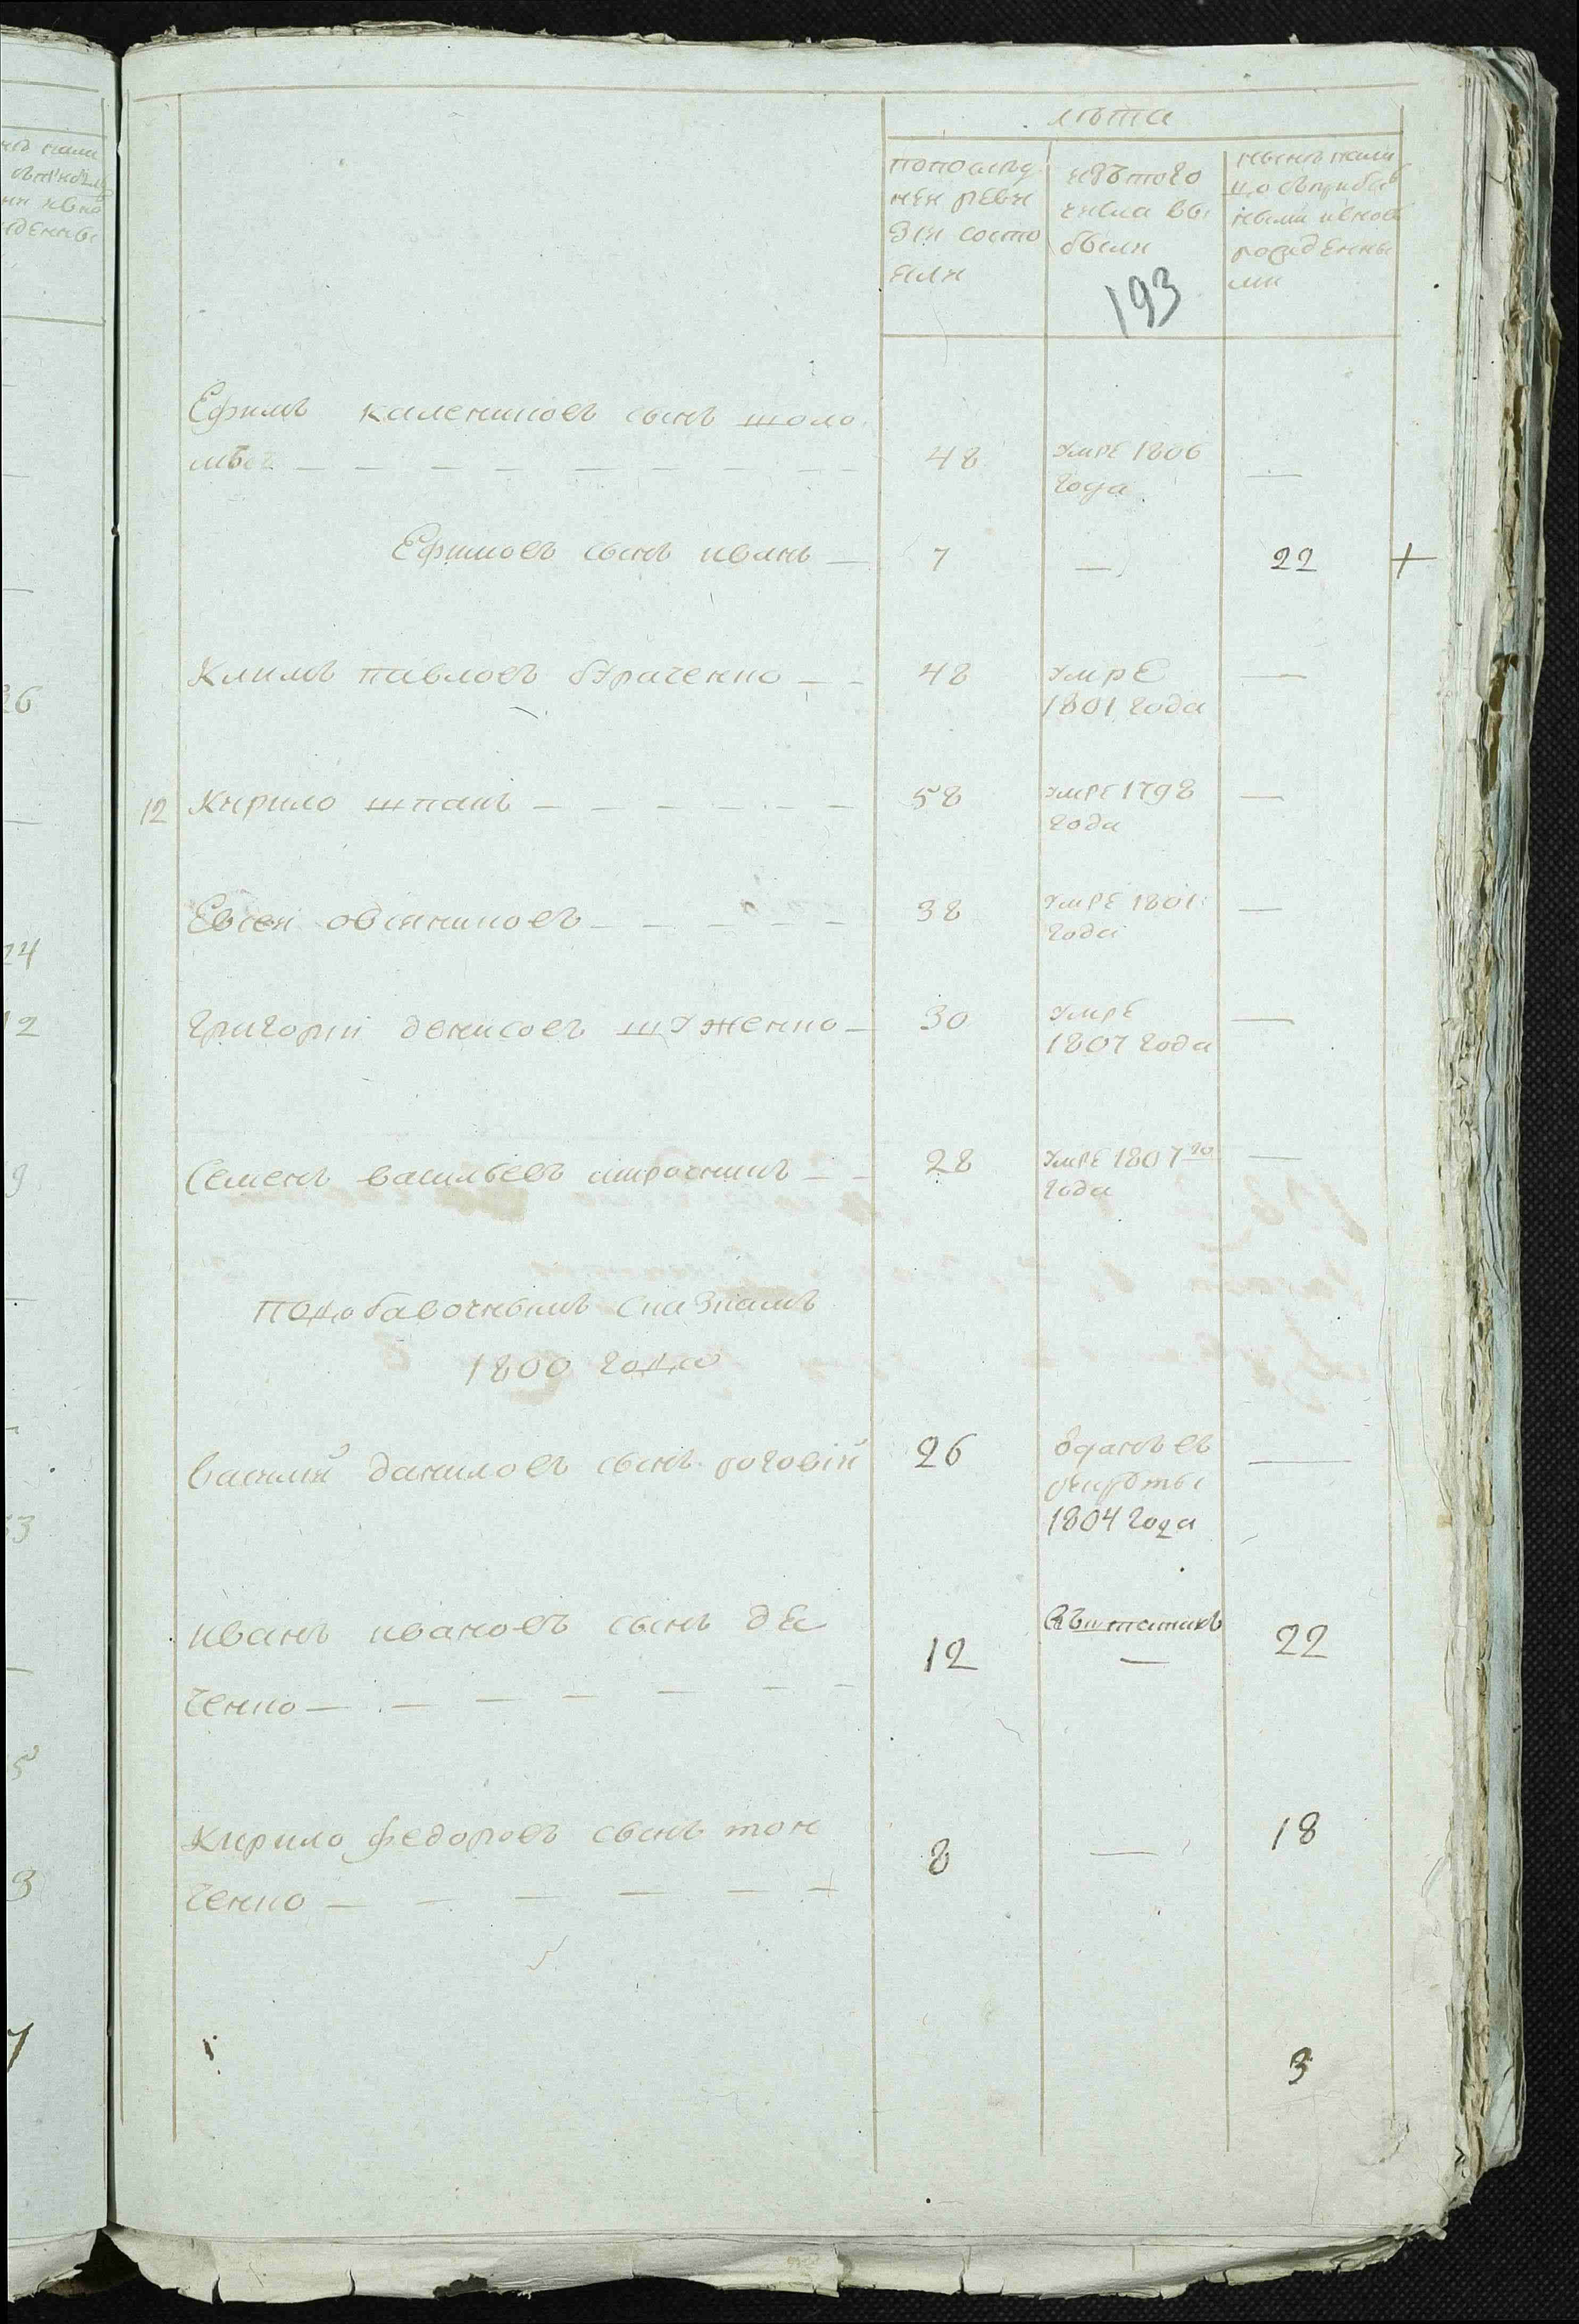 лѣта
попослѣд
ней реви
зіи состо
яли
изътого
числа вы
были
нынѣ нали
цо съприбы
ными иново
рожденны
ми
193
Ефимъ калениковъ сынъ шоло
48
умре 1806
—
года
Ефимовъ сынъ иванъ —
7
—
22
+
Климъ павловъ бураченко — —
48
умре
—
1801 года
12
Кирило шпакъ — — — — — —
58
умре 1798
—
года
Евсей овсяниковъ — — — — —
38
умре 1801
—
года
Григорий денисовъ шуженко —
30
умре
—
1807 года
Семенъ васильевъ мирочникъ — —
28
умре 1807го
—
года
подобавочнымъ сказкамъ
1800 года
василий даниловъ сынъ роговій
26
одданъ въ
—
рекруты
1804 года
иванъ ивановъ сынъ де
12
—
22
ченко — — — — — — —
Кирило федоровъ сынъ тон
8
—
18
ченко — — — — — —
3